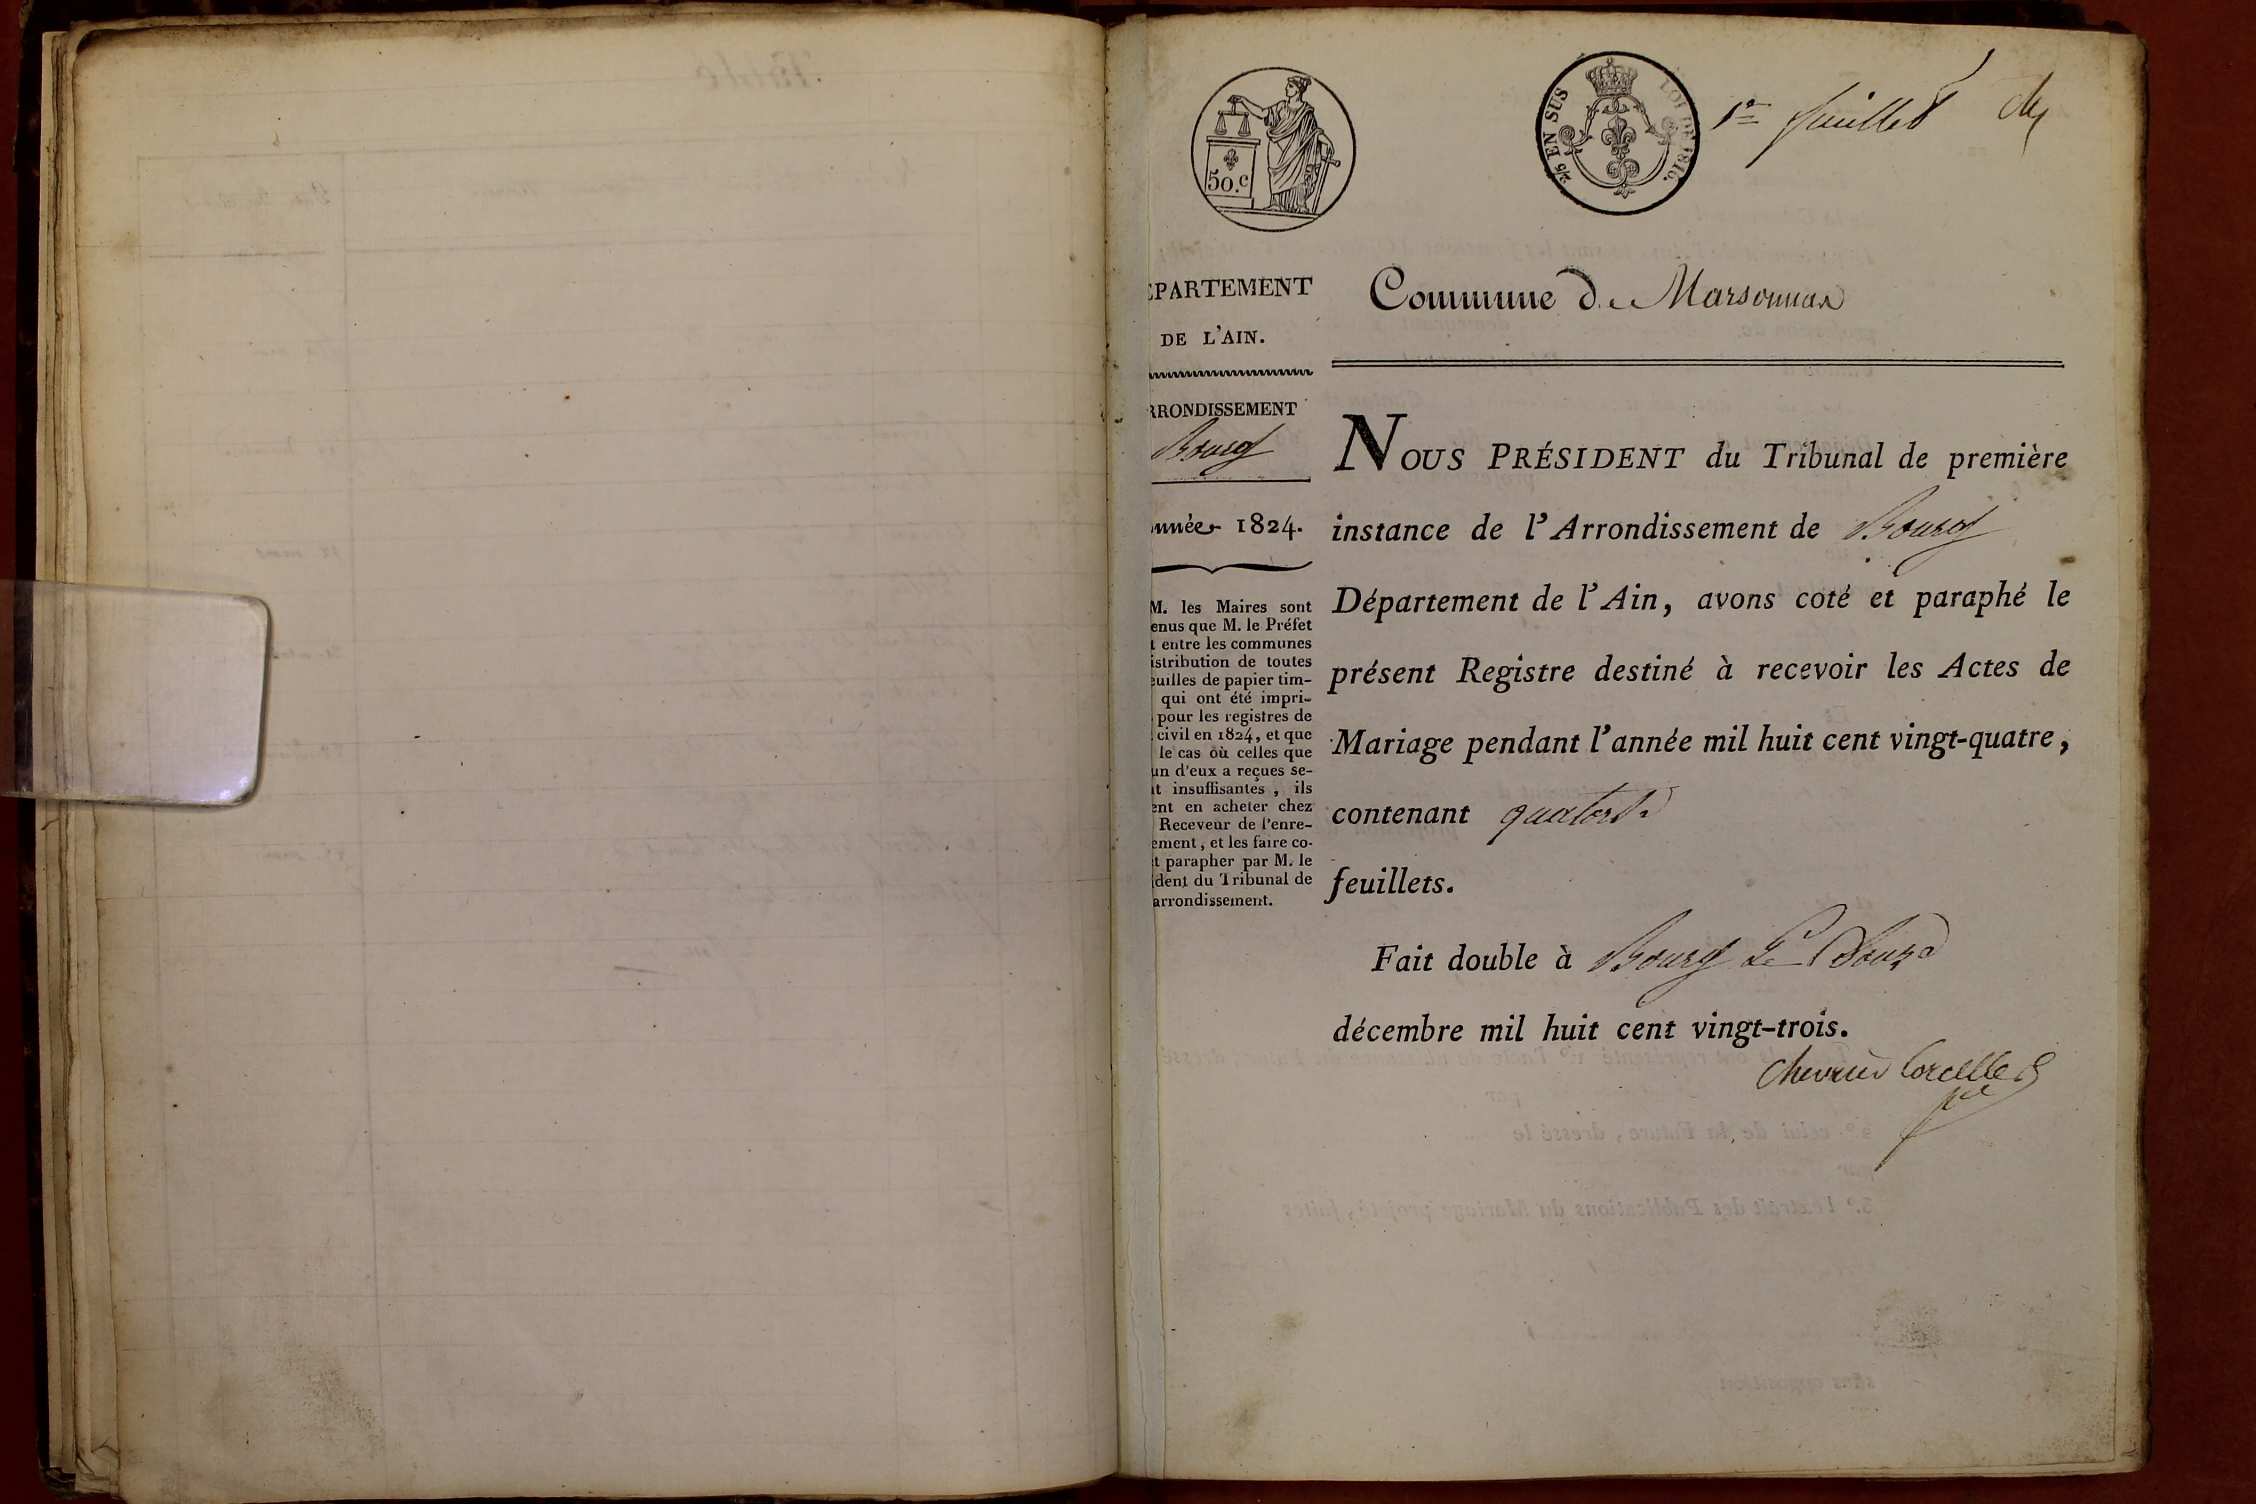 50.c
2/5 EN SUS
LOI DE 1816.
1er feuillet
EPARTEMENT
DE L'AIN.
RRONDISSEMENT
Bourg
nnée 1824.
M. les Maires sont
enus que M. le Préfet
t entre les communes
istribution de toutes
euilles de papier tim-
qui ont été impri-
pour les registres de
civil en 1824, et que
le cas où celles que
un d'eux a reçues se-
nt insuffisantes, ils
ent en acheter chez
Receveur de l'enre-
ement, et les faire co-
t parapher par M. le
ident du Tribunal de
arrondissement.
Commune de Marsonnas
NOUS PRÉSIDENT du Tribunal de première
instance de l'Arrondissement de Bourg
Département de l'Ain, avons coté et paraphé le
présent Registre destiné à recevoir les Actes de
Mariage pendant l'année mil huit cent vingt-quatre,
contenant quatorze
feuillets.
Fait double à Bourg Le Douze
décembre mil huit cent vingt-trois.
Chevrier Corcelles